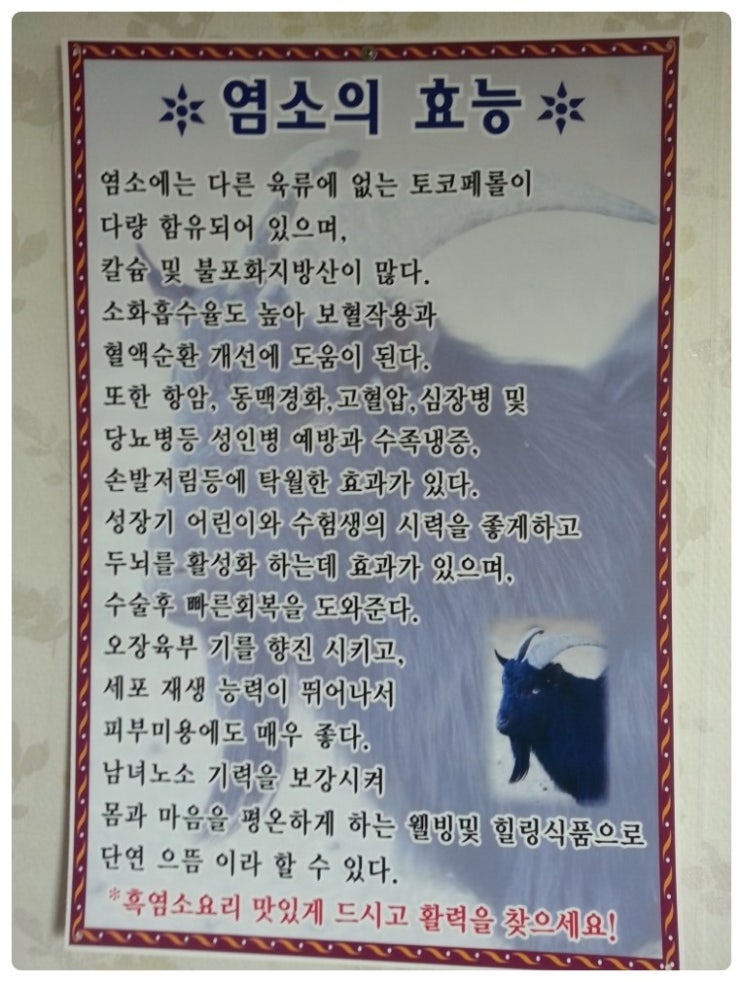 염소의 효능
염소에는 다른 육류에 없는 토코페롤이
다량 함유되어 있으며,
칼슘 및 불포화지방산이 많다.
소화흡수율도 높아 보혈작용과
혈액순환 개선에 도움이 된다.
또한 항암, 동맥경화,고혈압,심장병 및
당뇨병등 성인병 예방과 수족냉증,
손발저림등에 탁월한 효과가 있다.
성장기 어린이와 수험생의 시력을 좋게하고
두뇌를 활성화 하는데 효과가 있으며,
수술후 빠른회복을 도와준다.
오장육부 기를 향진 시키고,
세포 재생 능력이 뛰어나서
피부미용에도 매우 좋다.
남녀노소 기력을 보강시켜
몸과 마음을 평온하게 하는 웰빙및 힐링식품으로
단연 으뜸 이라 할 수 있다.
*흑염소요리 맛있게 드시고 활력을 찾으세요!